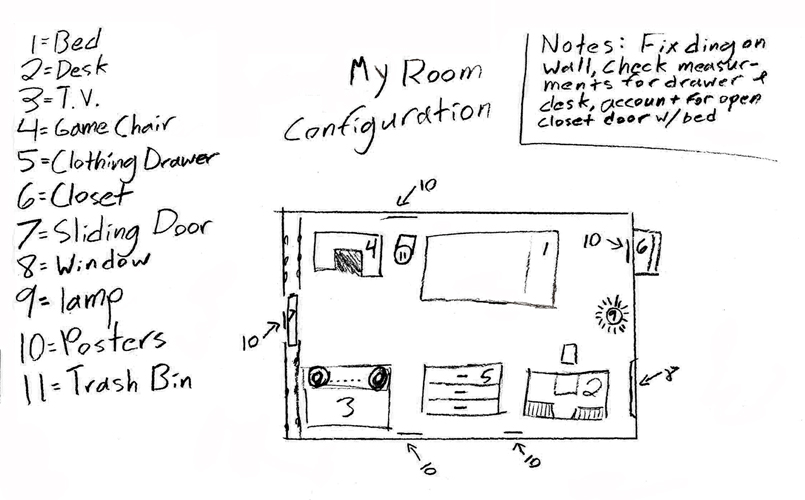 1=Bed
2=Desk
3=T.V.
4=Game Chair
5=Clothing Drawer
6=Closet
7=Sliding Door
8=Window
9=lamp
10=Posters
11=Trash Bin
My Room
Configuration
Notes: Fix ding on
wall, Check measur-
ments for drawer &
desk, account for open
closet door w/bed
10
4
11
1
10
6
9
10
7
8
3
5
2
10
10